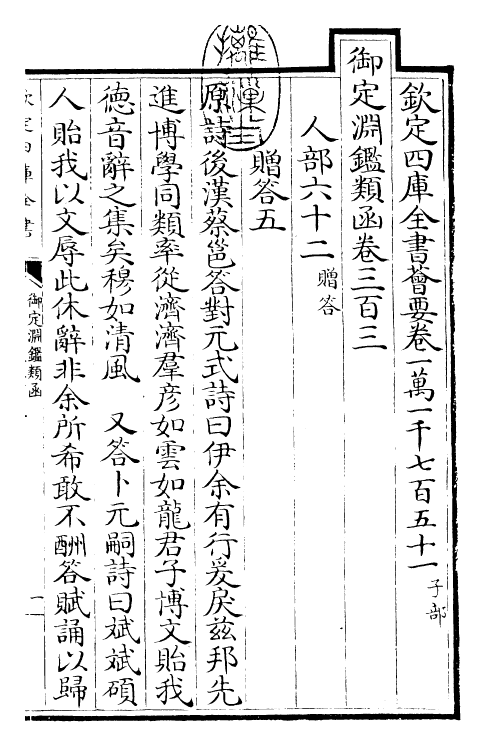 欽定四庫全書薈要卷一萬一千七百五十一子部
御定淵鑑類函卷三百三
人部六十二贈答
贈答五
原詩後漢蔡邕答對元式詩曰伊余有行爰戾茲邦先
進博學同類率從濟濟羣彦如雲如龍君子博文貽我
德音辭之集矣穆如清風　又答卜元嗣詩曰斌斌碩
人貽我以文辱此休辭非余所希敢不酬答賦誦以歸
欽定四庫全書
御定淵鑑類函
一